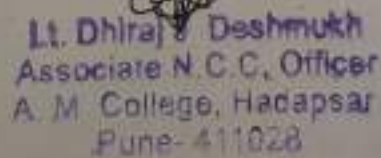 Lt. Dhiraj Deshmukh
Associate N.C.C, Officer
A. M. College, Hadapsar
Pune-411028